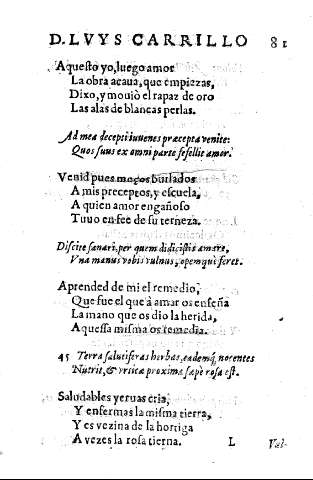 D. LVYS CARRILLO 81
Aquesto yo, luego amor
La obra acaua, que empiezas,
Dixo, y mouiò el rapaz de oro
Las alas de blancas perlas.
Ad mea decepti iuuenes præcepta venite:
Quos suus ex omni parte fefellit amor.
Venid pues moços burlados
A mis preceptos, y escuela,
A quien amor engañoso
Tuuo en fee de su terneza.
Discite sanari, per quem didicistis amare,
Vna manus vobis vulnus, opemque feret.
Aprended de mi el remedio,
Que fue el que à amar os enseña
La mano que os dio la herida,
Aquessa misma os remedia.
45 Terra salutiferas herbas, eademq; nocentes
Nutrit, & vrticæ proxima sæpè rosa est.
Saludables yeruas cria,
Y enfermas la misma tierra,
Y es vezina de la hortiga
A vezes la rosa tierna.
L Val-